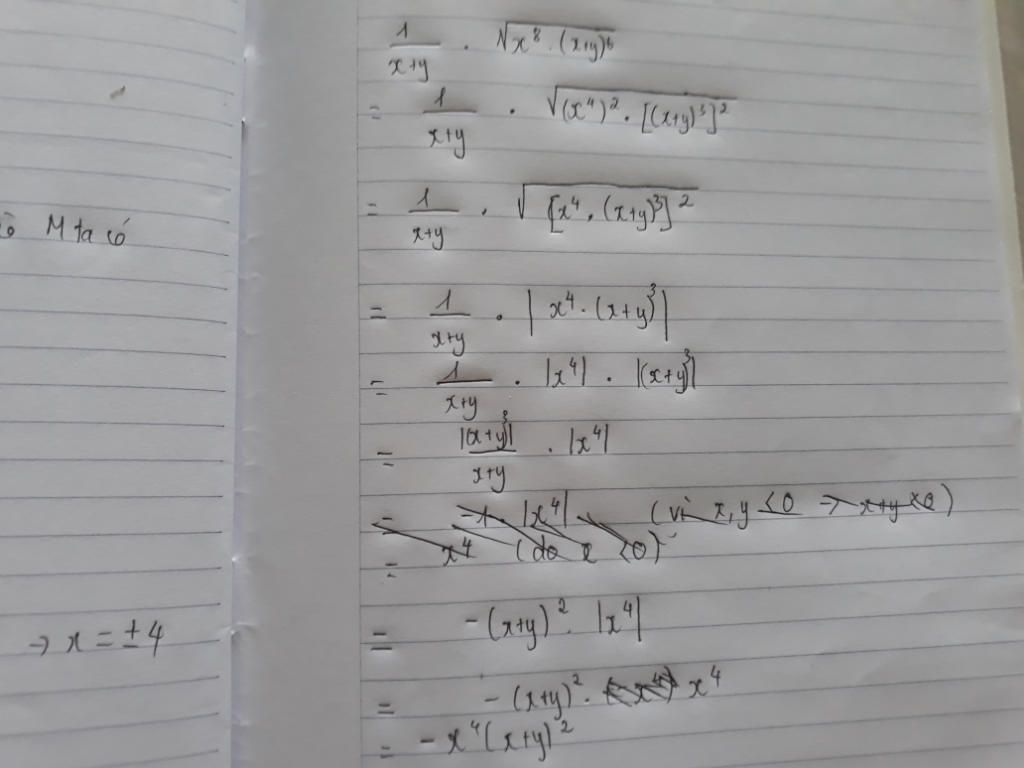 ĩò M ta có
→ x = ±4
1/(x+y) . √(x⁸ . (x+y)⁶)
= 1/(x+y) . √((x⁴)² . [(x+y)³]²)
= 1/(x+y) . √([x⁴ . (x+y)³]²)
= 1/(x+y) . |x⁴ . (x+y)³|
= 1/(x+y) . |x⁴| . |(x+y)³|
= |(x+y)³|/(x+y) . |x⁴|
= -1 . |x⁴| (vì x, y <0 → x+y <0)
= x⁴ (do x <0)
= -(x+y)² . |x⁴|
= -(x+y)² . x⁴
= -x⁴(x+y)²